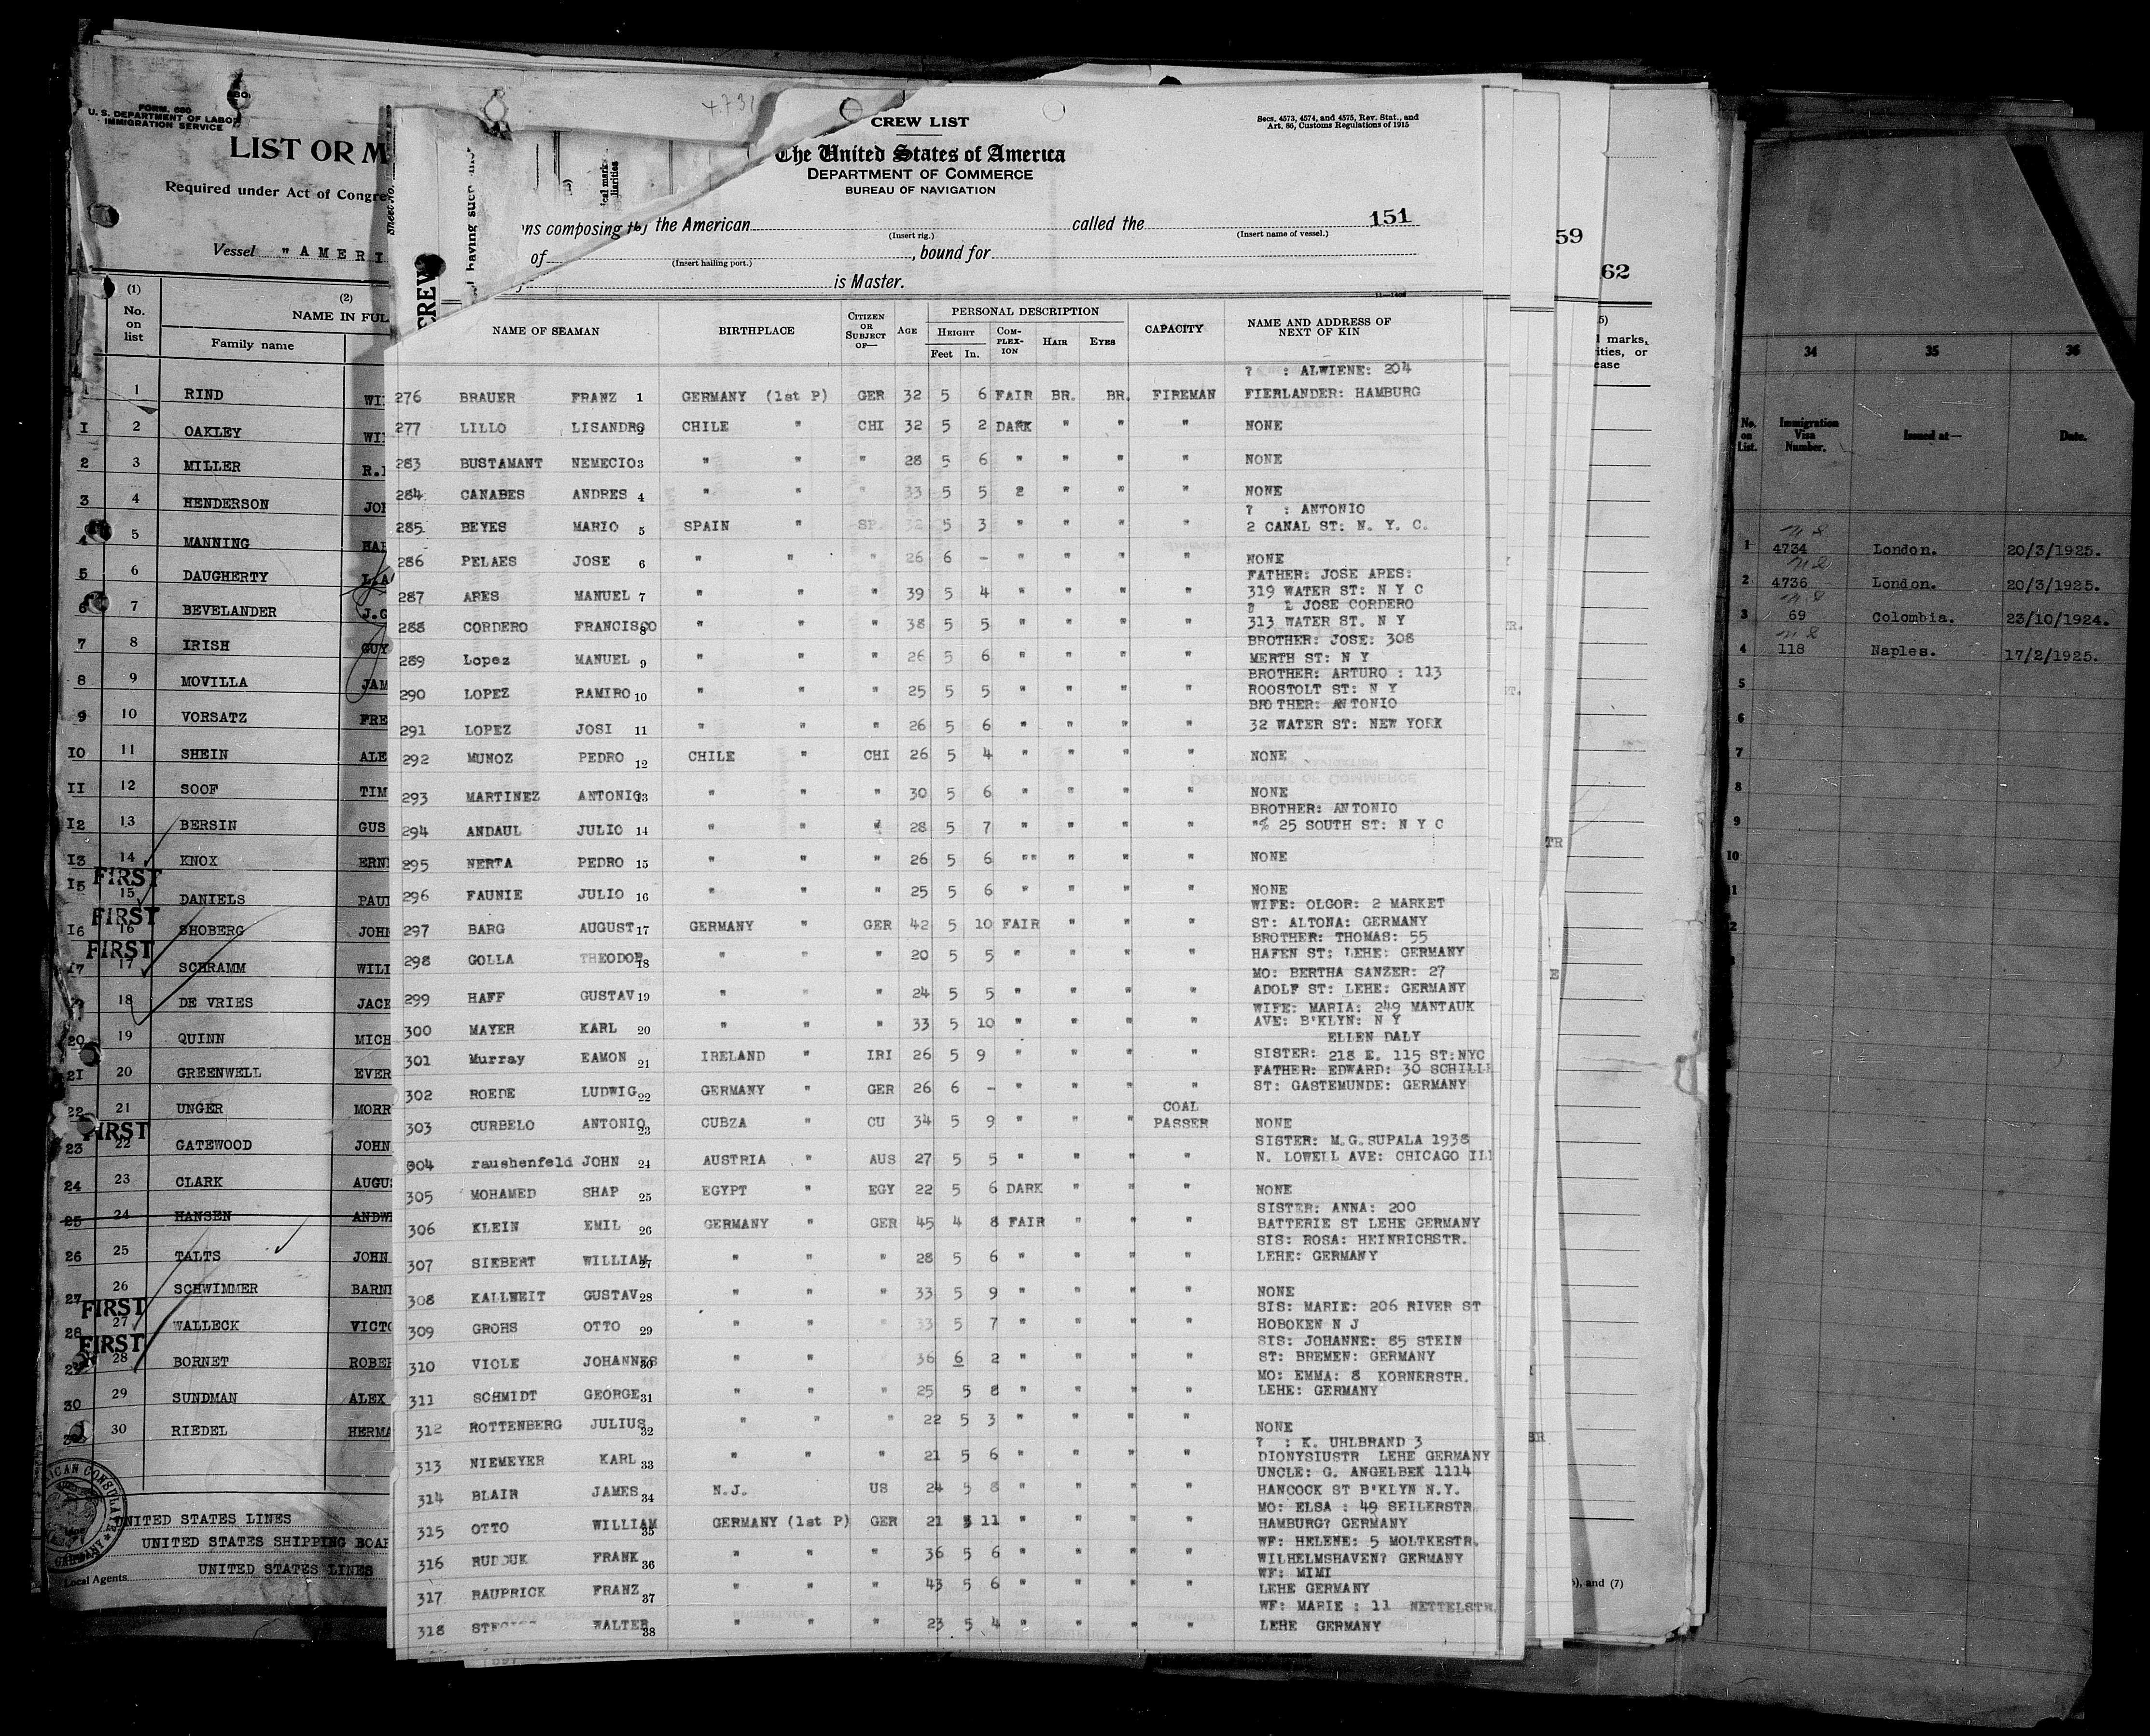 FORM. 680
U. S. DEPARTMENT OF LABOR
IMMIGRATION SERVICE
LIST OR M
Required under Act of Congre
Vessel "AMERI
(1) (2)
No. on list NAME IN FUL
Family name
1 1 RIND WI
I 2 OAKLEY WI
2 3 MILLER R.
3 4 HENDERSON JOH
4 5 MANNING HAR
5 6 DAUGHERTY L.A
6 7 BEVELANDER J.G
7 8 IRISH GUY
8 9 MOVILLA JAM
9 10 VORSATZ FRE
IO 11 SHEIN ALE
II 12 SOOF TIM
I2 13 BERSIN GUS
I3 14 KNOX ERN
FIRST
I5 15 DANIELS PAU
FIRST
I6 16 SHOBERG JOHN
FIRST
17 17 SCHRAMM WILI
18 DE VRIES JACK
20 19 QUINN MICH
21 20 GREENWELL EVER
22 21 UNGER MORR
FIRST
23 22 GATEWOOD JOHN
24 23 CLARK AUGU
25 24 HANSEN ANDW
26 25 TALTS JOHN
27 26 SCHWIMMER BARN
FIRST
28 27 WALLECK VICTO
FIRST
29 28 BORNET ROBE
30 29 SUNDMAN ALEX
30 RIEDEL HERMA
UNITED STATES LINES
UNITED STATES SHIPPING BOA
UNITED STATES LINES
Local Agents
4731
Sheet No.
having such
CREW
CREW LIST
Secs. 4573, 4574, and 4575, Rev. Stat., and
Art. 86, Customs Regulations of 1915
The United States of America
DEPARTMENT OF COMMERCE
BUREAU OF NAVIGATION
ns composing the American called the 151
(Insert rig.) (Insert name of vessel.)
of , bound for
(Insert hailing port.)
is Master.
11—1406
NAME OF SEAMAN BIRTHPLACE CITIZEN OR SUBJECT OF— AGE PERSONAL DESCRIPTION CAPACITY NAME AND ADDRESS OF NEXT OF KIN
HEIGHT COMPLEXION HAIR EYES
Feet In.
? : ALWIENE: 204
276 BRAUER FRANZ 1 GERMANY (1st P) GER 32 5 6 FAIR BR. BR. FIREMAN FIERLANDER: HAMBURG
277 LILLO LISANDRO 2 CHILE " CHI 32 5 2 DARK " " " NONE
283 BUSTAMANT NEMECIO 3 " " " 28 5 6 " " " " NONE
284 CANABES ANDRES 4 " " " 33 5 5 2 " " " NONE
? : ANTONIO
285 BEYES MARIO 5 SPAIN " SP. 32 5 3 " " " " 2 CANAL ST: N. Y. C.
286 PELAES JOSE 6 " " " 26 6 - " " " " NONE
FATHER: JOSE ARES:
287 ARES MANUEL 7 " " " 39 5 4 " " " " 319 WATER ST: N Y C
JOSE CORDERO
288 CORDERO FRANCISCO 8 " " " 38 5 5 " " " " 313 WATER ST. N Y
BROTHER: JOSE: 308
289 Lopez MANUEL 9 " " " 26 5 6 " " " " MERTH ST: N Y
BROTHER: ARTURO : 113
290 LOPEZ RAMIRO 10 " " " 25 5 5 " " " " ROOSTOLT ST: N Y
BROTHER: ANTONIO
291 LOPEZ JOSI 11 " " " 26 5 6 " " " " 32 WATER ST: NEW YORK
292 MUNOZ PEDRO 12 CHILE " CHI 26 5 4 " " " " NONE
293 MARTINEZ ANTONIO 13 " " " 30 5 6 " " " " NONE
BROTHER: ANTONIO
294 ANDAUL JULIO 14 " " " 28 5 7 " " " " "% 25 SOUTH ST: N Y C
295 NERTA PEDRO 15 " " " 26 5 6 "" " " " NONE
296 FAUNIE JULIO 16 " " " 25 5 6 " " " " NONE
WIFE: OLGOR: 2 MARKET
297 BARG AUGUST 17 GERMANY " GER 42 5 10 FAIR " " " ST: ALTONA: GERMANY
BROTHER: THOMAS: 55
298 GOLLA THEODOR 18 " " " 20 5 5 " " " " HAFEN ST: LEHE: GERMANY
MO: BERTHA SANZER: 27
299 HAFF GUSTAV 19 " " " 24 5 5 " " " " ADOLF ST: LEHE: GERMANY
WIFE: MARIA: 249 MANTAUK
300 MAYER KARL 20 " " " 33 5 10 " " " " AVE: B'KLYN: N Y
ELLEN DALY
301 Murray EAMON 21 IRELAND " IRI 26 5 9 " " " " SISTER: 218 E. 115 ST:NYC
FATHER: EDWARD: 30 SCHILL
302 ROEDE LUDWIG 22 GERMANY " GER 26 6 - " " " " ST: GASTEMUNDE: GERMANY
COAL
303 CURBELO ANTONIO 23 CUBZA " CU 34 5 9 " " " PASSER NONE
SISTER: M.G.SUPALA 1938
304 raushenfeld JOHN 24 AUSTRIA " AUS 27 5 5 " " " " N. LOWELL AVE: CHICAGO ILl
305 MOHAMED SHAP 25 EGYPT " EGY 22 5 6 DARK " " " NONE
SISTER: ANNA: 200
306 KLEIN EMIL 26 GERMANY " GER 45 4 8 FAIR " " " BATTERIE ST LEHE GERMANY
SIS: ROSA: HEINRICHSTR.
307 SIEBERT WILLIAM 27 " " " 28 5 6 " " " " LEHE: GERMANY
308 KALLWEIT GUSTAV 28 " " " 33 5 9 " " " " NONE
SIS: MARIE: 206 RIVER ST
309 GROHS OTTO 29 " " " 33 5 7 " " " " HOBOKEN N J
SIS: JOHANNE: 85 STEIN
310 VIOLE JOHANNES 30 " " 36 6 2 " " " " ST: BREMEN: GERMANY
MO: EMMA: 8 KORNERSTR.
311 SCHMIDT GEORGE 31 " " " 25 5 8 " " " " LEHE: GERMANY
312 ROTTENBERG JULIUS 32 " " " 22 5 3 " " " " NONE
? : K. UHLBRAND 3
313 NIEMEYER KARL 33 " " 21 5 6 " " " " DIONYSIUSTR LEHE GERMANY
UNCLE: G. ANGELBEK 1114
314 BLAIR JAMES 34 N.J. US 24 5 8 " " " " HANCOCK ST B'KLYN N.Y.
MO: ELSA : 49 SEILERSTR.
315 OTTO WILLIAM 35 GERMANY (1st P) GER 21 5 11 " " " " HAMBURG? GERMANY
WF: HELENE: 5 MOLTKESTR.
316 RUDOUK FRANK 36 " " " 36 5 6 " " " " WILHELMSHAVEN? GERMANY
WF: MIMI
317 RAUPRICK FRANZ 37 " " " 43 5 6 " " " " LEHE GERMANY
WF: MARIE : 11 NETTELSTR.
318 WALTER 38 " " " 23 5 4 " " " " LEHE GERMANY
59
62
l marks,
ities, or
ease
), and (7)
34 35 36
No. on List. Immigration Visa Number. Issued at— Date.
1 4734 London. 20/3/1925.
2 4736 London. 20/3/1925.
3 69 Colombia. 23/10/1924.
4 118 Naples. 17/2/1925.
5
6
7
8
9
10